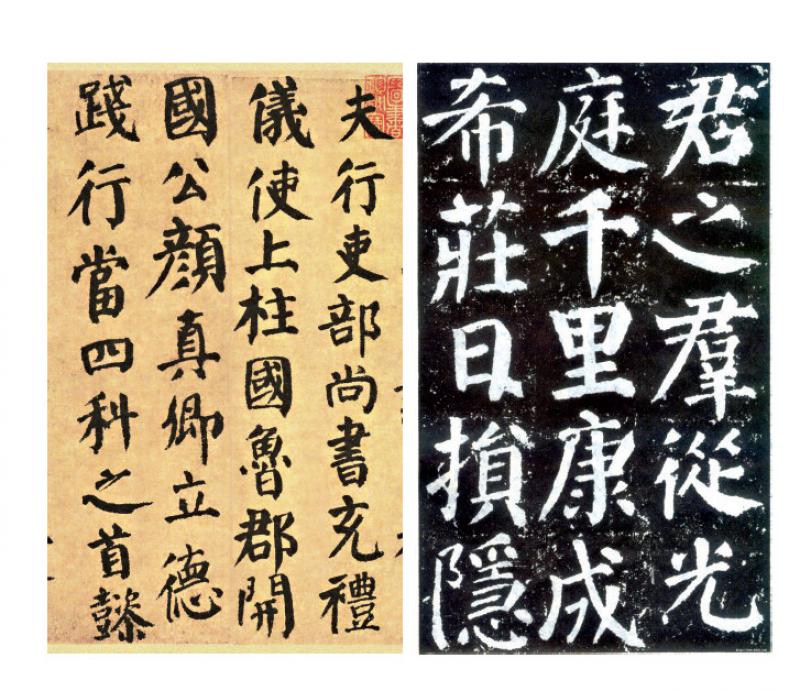 夫行吏部尚書充禮
儀使上柱國魯郡開
國公顏真卿立德
踐行當四科之首懿
君之羣從光
庭千里康成
希莊日損隱